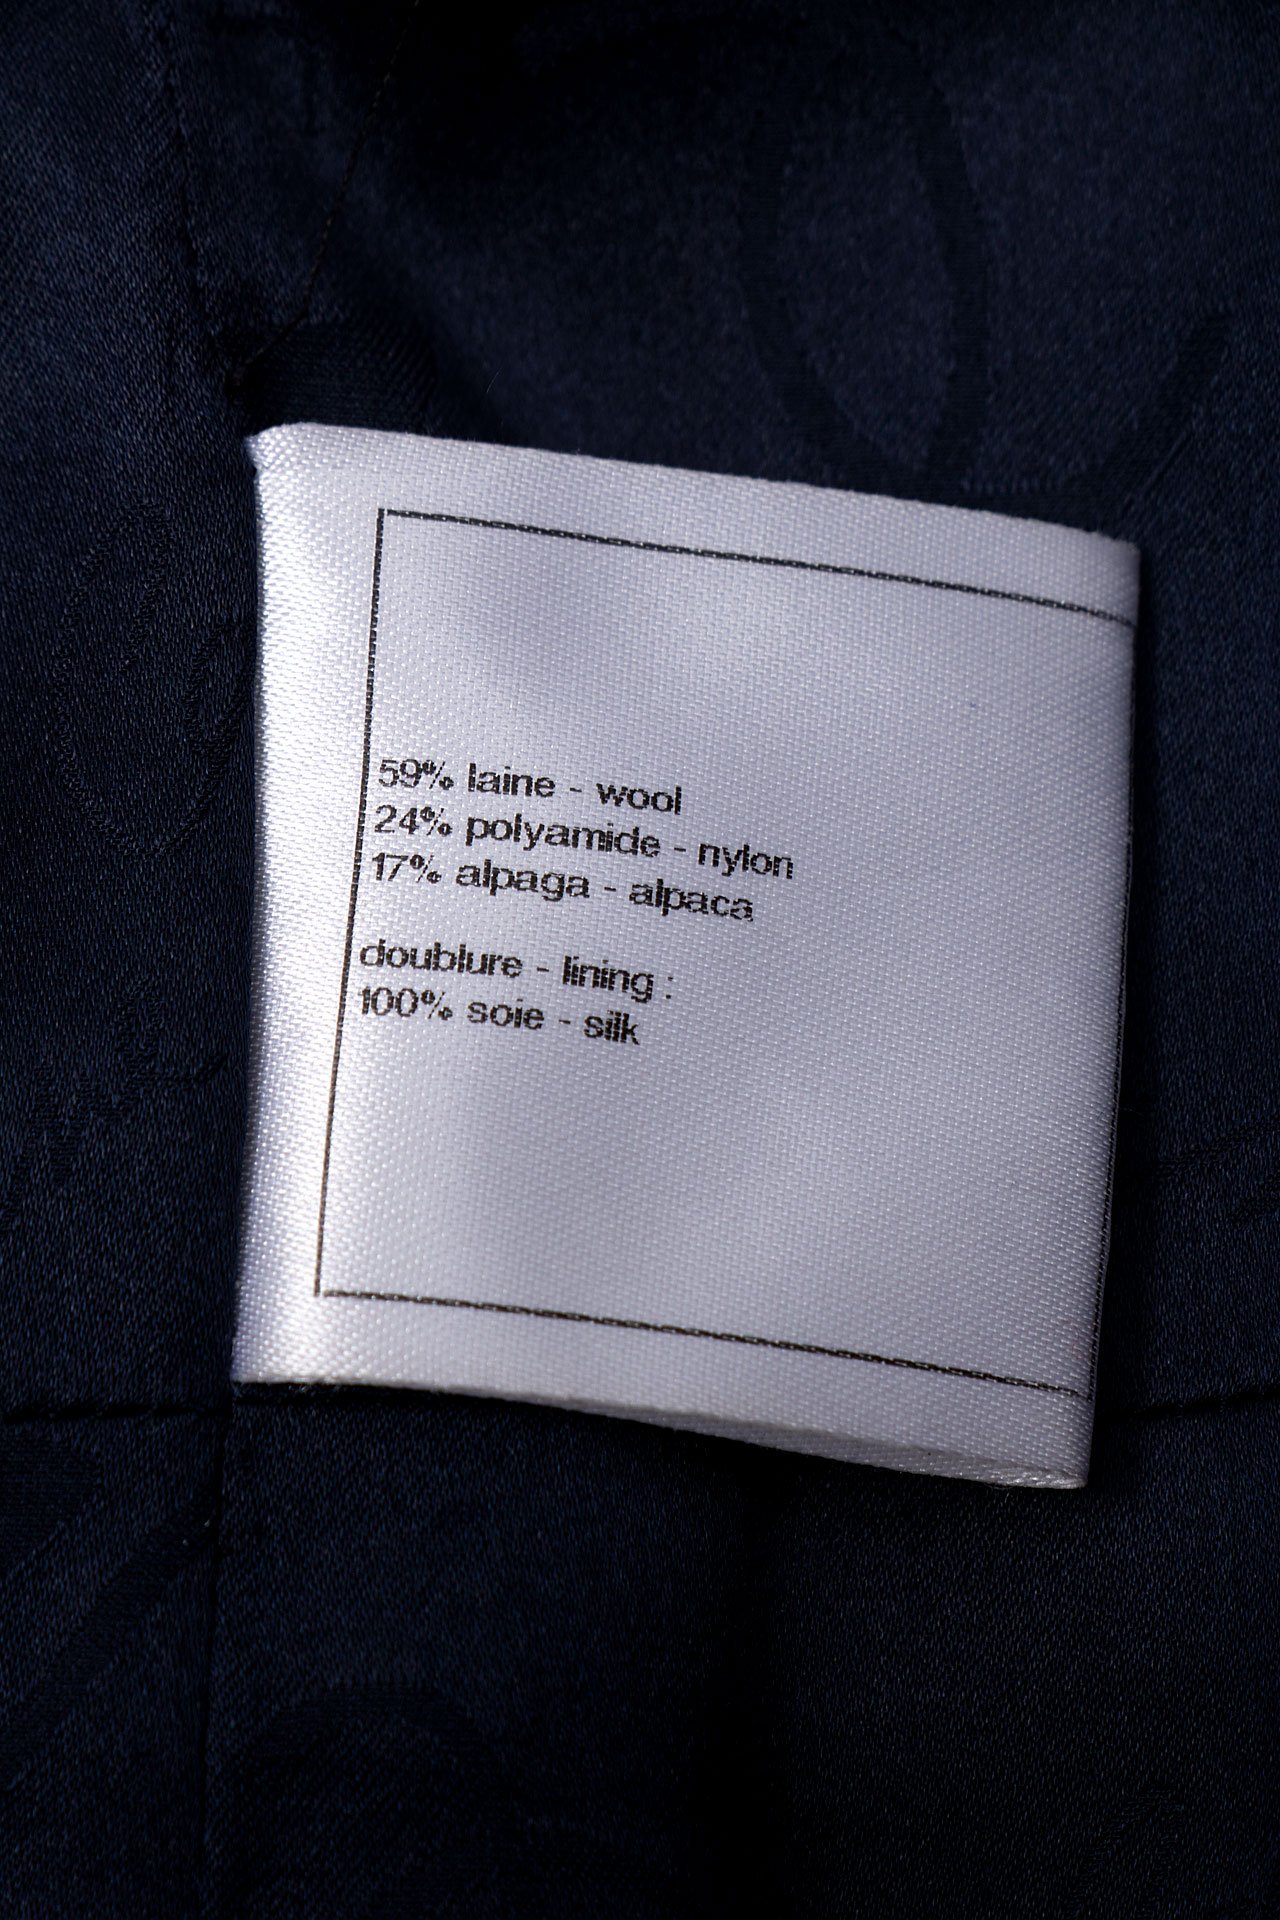 59% laine - wool
24% polyamide - nylon
17% alpaga - alpaca
doublure - lining :
100% soie - silk